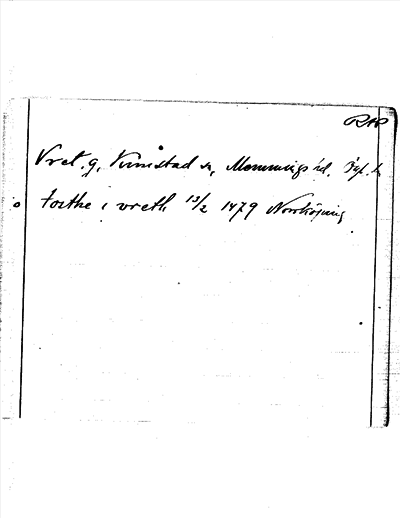 RAP
Vret. g, Kimstad sn, Memmings hd. Ögl. l.
Joethe i vreth 13/2 1479 Norrköping